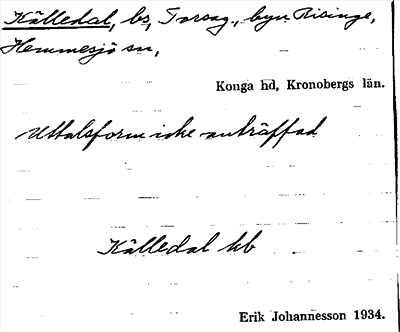 Källedal, bs, Torsag., byn Risinge,
Hemmesjö sn,
Konga hd, Kronobergs län.
Uttalsform icke anträffad
Källedal hb
Erik Johannesson 1934.